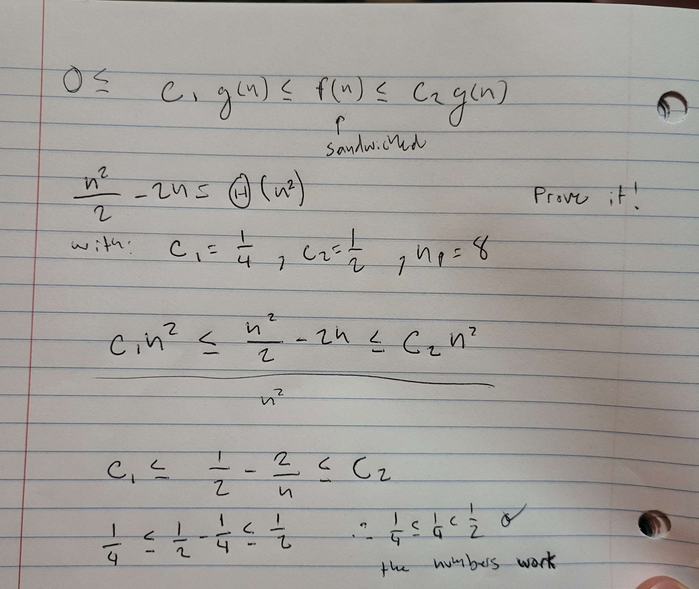 0 ≤ c₁ g(n) ≤ f(n) ≤ c₂ g(n)
↑
sandwiched
n²/2 - 2n = Θ(n²) Prove it!
with: c₁ = 1/4 , c₂ = 1/2 , n₀ = 8
c₁n² ≤ n²/2 - 2n ≤ c₂n²
n²
c₁ ≤ 1/2 - 2/n ≤ c₂
1/4 ≤ 1/2 - 1/4 ≤ 1/2 ∴ 1/4 ≤ 1/4 < 1/2 ✓
the numbers work